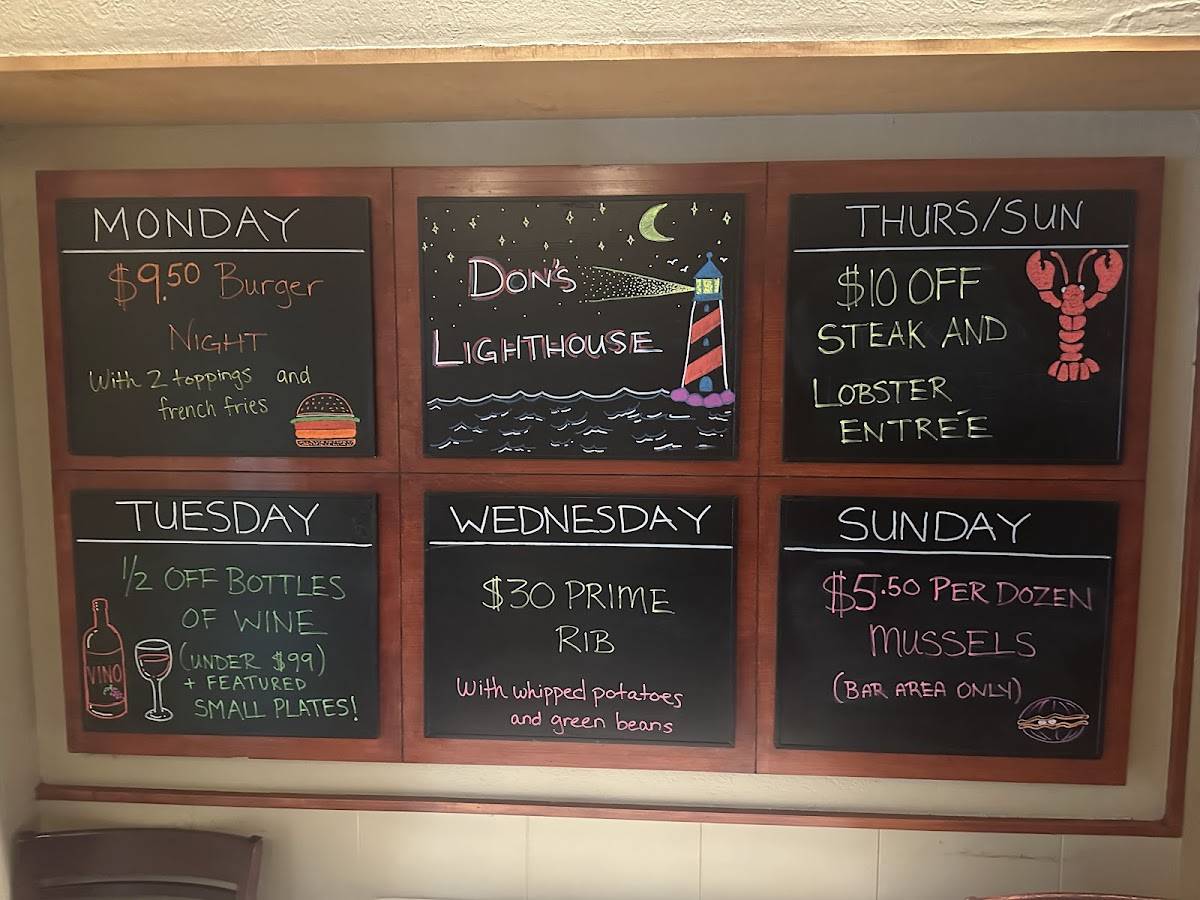 MONDAY
$9.50 Burger
NIGHT
With 2 toppings and
french fries
DON'S
LIGHTHOUSE
THURS/SUN
$10 OFF
STEAK AND
LOBSTER
ENTRÉE
TUESDAY
1/2 OFF BOTTLES
OF WINE
(UNDER $99)
+ FEATURED
SMALL PLATES!
VINO
WEDNESDAY
$30 PRIME
RIB
With whipped potatoes
and green beans
SUNDAY
$5.50 PER DOZEN
MUSSELS
(BAR AREA ONLY)